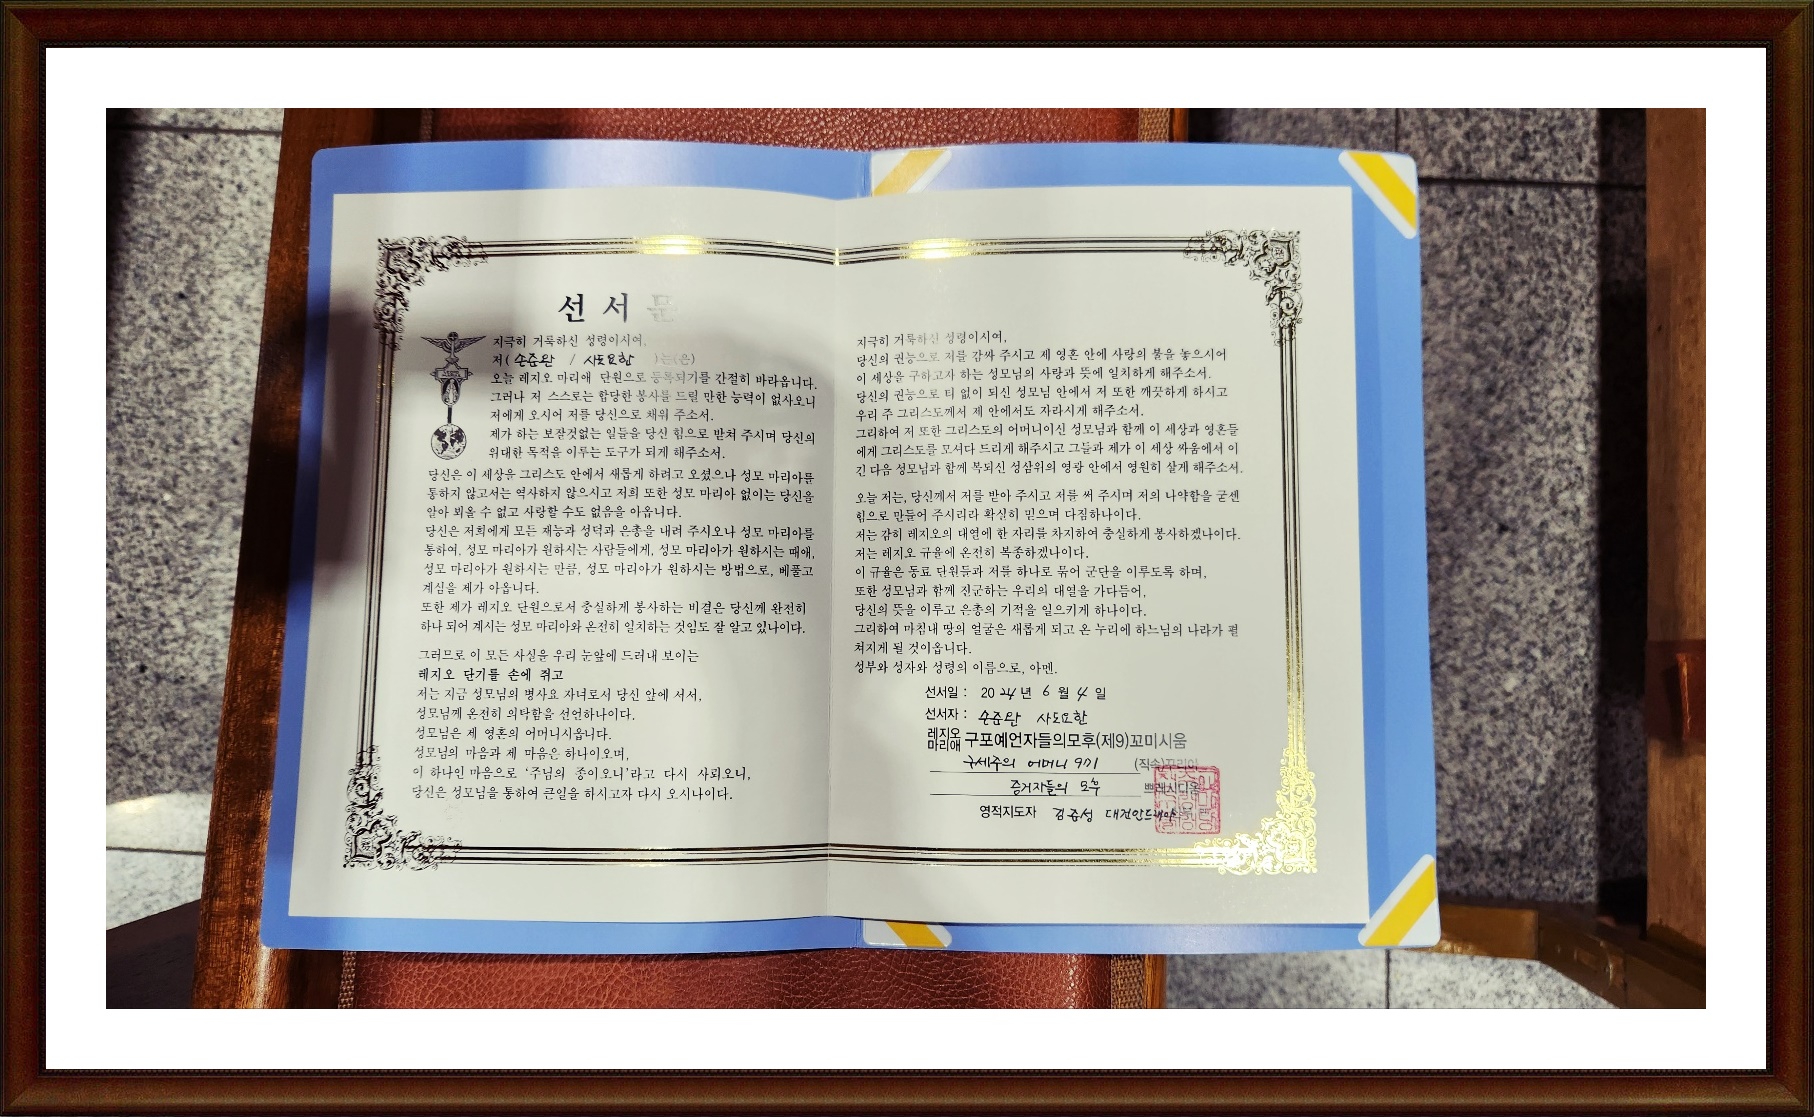 선 서 문
지극히 거룩하신 성령이시여,
저 ( 손준완 / 사도요한 )는(은)
오늘 레지오 마리애 단원으로 등록되기를 간절히 바라옵니다.
그러나 저 스스로는 합당한 봉사를 드릴 만한 능력이 없사오니
저에게 오시어 저를 당신으로 채워 주소서.
제가 하는 보잘것없는 일들을 당신 힘으로 받쳐 주시며 당신의
위대한 목적을 이루는 도구가 되게 해주소서.
당신은 이 세상을 그리스도 안에서 새롭게 하려고 오셨으나 성모 마리아를
통하지 않고서는 역사하지 않으시고 저희 또한 성모 마리아 없이는 당신을
알아 뵈올 수 없고 사랑할 수도 없음을 아옵니다.
당신은 저희에게 모든 재능과 성덕과 은총을 내려 주시오나 성모 마리아를
통하여, 성모 마리아가 원하시는 사람들에게, 성모 마리아가 원하시는 때에,
성모 마리아가 원하시는 만큼, 성모 마리아가 원하시는 방법으로, 베풀고
계심을 제가 아옵니다.
또한 제가 레지오 단원으로서 충실하게 봉사하는 비결은 당신께 완전히
하나 되어 계시는 성모 마리아와 온전히 일치하는 것임도 잘 알고 있나이다.
그러므로 이 모든 사실을 우리 눈앞에 드러내 보이는
레지오 단기를 손에 쥐고
저는 지금 성모님의 병사요 자녀로서 당신 앞에 서서,
성모님께 온전히 의탁함을 선언하나이다.
성모님은 제 영혼의 어머니시옵니다.
성모님의 마음과 제 마음은 하나이오며,
이 하나인 마음으로 '주님의 종이오니'라고 다시 사뢰오니,
당신은 성모님을 통하여 큰일을 하시고자 다시 오시나이다.
지극히 거룩하신 성령이시여,
당신의 권능으로 저를 감싸 주시고 제 영혼 안에 사랑의 불을 놓으시어
이 세상을 구하고자 하는 성모님의 사랑과 뜻에 일치하게 해주소서.
당신의 권능으로 티 없이 되신 성모님 안에서 저 또한 깨끗하게 하시고
우리 주 그리스도께서 제 안에서도 자라시게 해주소서.
그리하여 저 또한 그리스도의 어머니이신 성모님과 함께 이 세상과 영혼들
에게 그리스도를 모셔다 드리게 해주시고 그들과 제가 이 세상 싸움에서 이
긴 다음 성모님과 함께 복되신 성삼위의 영광 안에서 영원히 살게 해주소서.
오늘 저는, 당신께서 저를 받아 주시고 저를 써 주시며 저의 나약함을 굳센
힘으로 만들어 주시리라 확실히 믿으며 다짐하나이다.
저는 감히 레지오의 대열에 한 자리를 차지하여 충실하게 봉사하겠나이다.
저는 레지오 규율에 온전히 복종하겠나이다.
이 규율은 동료 단원들과 저를 하나로 묶어 군단을 이루도록 하며,
또한 성모님과 함께 진군하는 우리의 대열을 가다듬어,
당신의 뜻을 이루고 은총의 기적을 일으키게 하나이다.
그리하여 마침내 땅의 얼굴은 새롭게 되고 온 누리에 하느님의 나라가 펼
쳐지게 될 것이옵니다.
성부와 성자와 성령의 이름으로, 아멘.
선서일 : 2024 년 6 월 4 일
선서자 : 손준완 사도요한
레지오 마리애 구포예언자들의모후(제9)꼬미시움
구세주의 어머니 9기 (직속)꾸리아
증거자들의 모후 쁘레시디움
영적지도자 김준성 대건안드레아